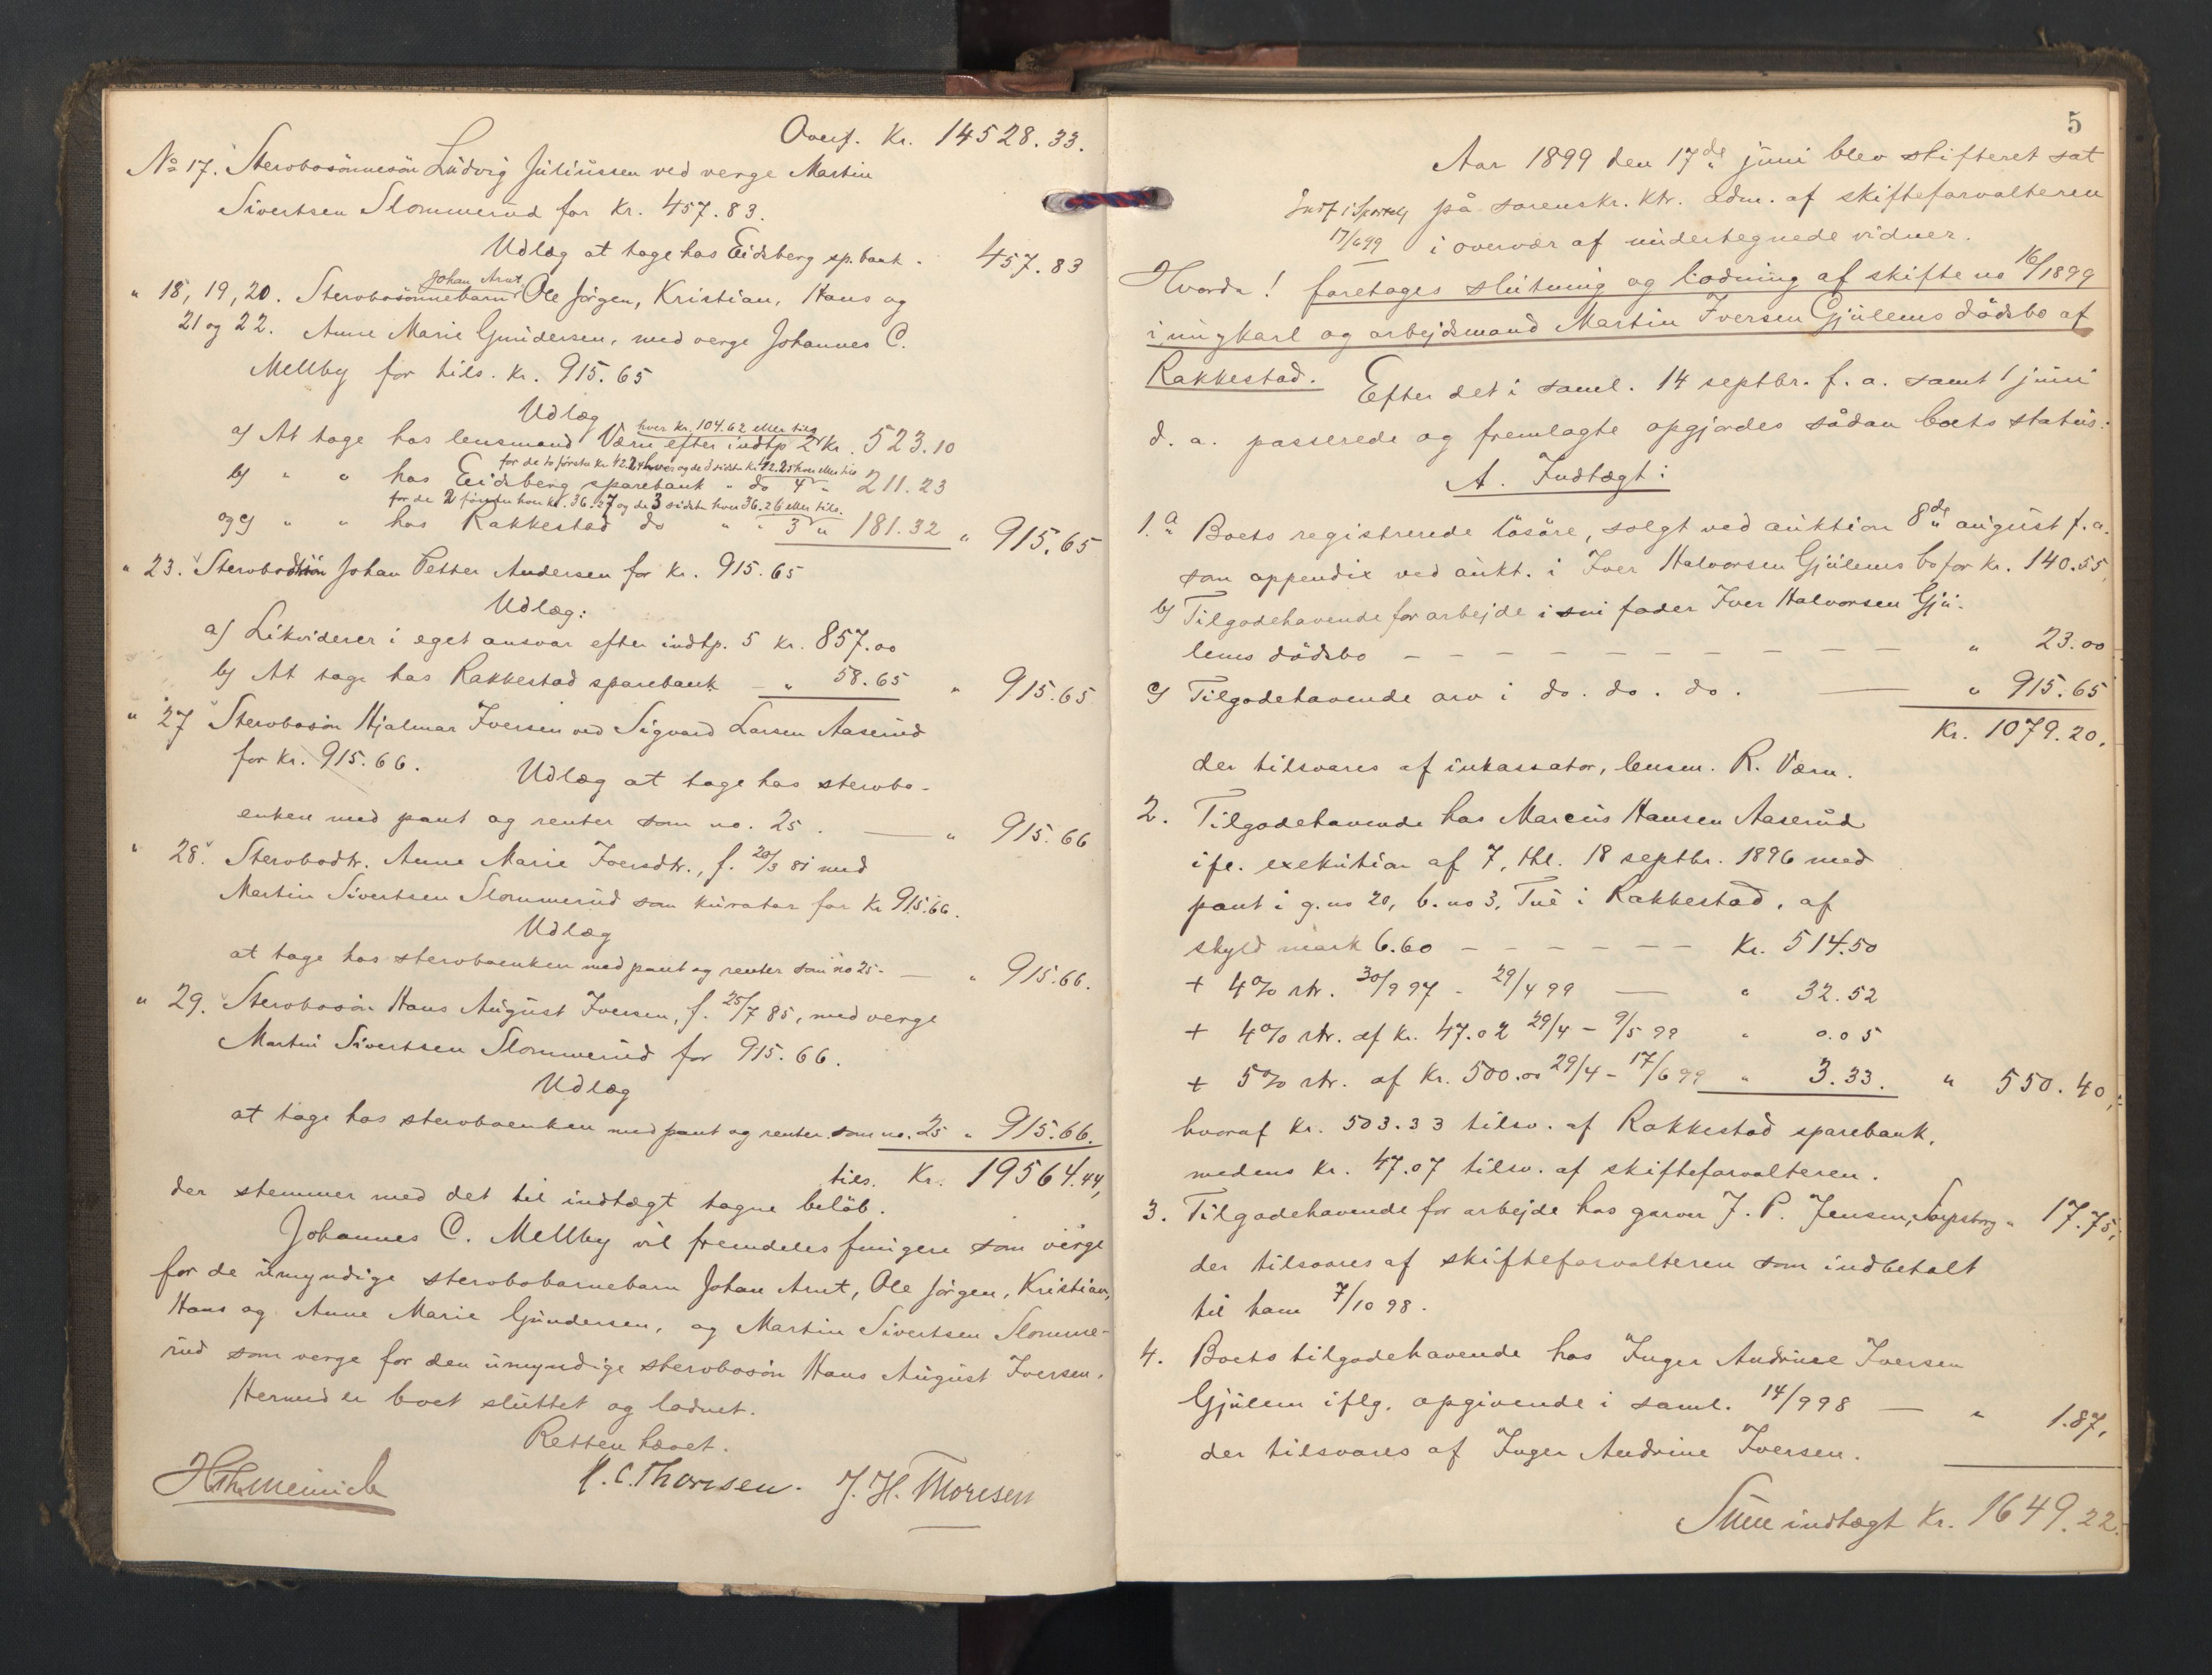 Overf. Kr. 14528.33.
No 17. Stervbosønnesøn Ludvig Juliussen ved verge Martin
Sivertsen Slommerud for Kr. 457.83.
Udlæg at tage hos Eidsberg sp.bank. 457.83
Johan Arnt,
" 18, 19, 20. Stervbosønnebarn Ole Jørgen, Kristian, Hans og
21 og 22. Anne Marie Gundersen, med verge Johannes C.
Mellby for tils. Kr. 915.65
Udlæg
hver kr. 104.62 eller tils.
a) At tage hos lensmand Værn efter indtp 2 kr. 523.10
for de to første kr. 42.24 hver og de 3 sidste kr. 42.25 hver eller tils
b) " " hos Eidsberg sparebank " do 4 " 211.23
for de 2 første hver kr. 36.27 og de 3 sidste hver 36.26 eller tils.
og c) " " hos Rakkestad do " " 3 " 181.32 " 915.65
" 23. Stervbosøn Johan Petter Andersen for Kr. 915.65
Udlæg:
a) Likviderer i eget ansvar efter indtp. 5 Kr. 857.00
b) At tage hos Rakkestad sparebank — " 58.65 " 915.65
" 27 Stervbosøn Hjalmar Iversen ved Sigvard Larsen Aaserud
for Kr. 915.66. Udlæg at tage hos stervbo-
enken med pant og renter som no. 25. — " 915.66
" 28. Stervbodtr. Anne Marie Iversdtr., f. 20/3 81 med
Martin Sivertsen Slommerud som kurator for Kr 915.66.
Udlæg
at tage hos stervboenken med pant og renter som no 25. — " 915.66.
" 29. Stervbosøn Hans August Iversen, f. 25/7 85, med verge
Martin Sivertsen Slommerud for 915.66.
Udlæg
at tage hos stervboenken med pant og renter som no. 25 " 915.66.
tils. Kr. 19564.44,
der stemmer med det til indtægt tagne beløb.
Johannes C. Mellby vil fremdeles fungere som verge
for de umyndige stervbobarnebarn Johan Arnt, Ole Jørgen, Kristian,
Hans og Anne Marie Gundersen, og Martin Sivertsen Slomme-
rud som verge for den umyndige stervbosøn Hans August Iversen.
Hermed er boet sluttet og lodnet.
Retten hævet.
H. C. Thoresen. J. H. Thoresen
5
Aar 1899 den 17de juni blev skifteret sat
på sorenskr. ktr. adm. af skifteforvalteren
17/6 99 i overvær af undertegnede vidner.
Hvorda! foretages slutning og lodning af skifte no 16/1899
i ungkarl og arbejdsmand Martin Iversen Gjulems dødsbo af
Rakkestad. Efter det i saml. 14 septbr. f. a. samt 1 juni
d. a. passerede og fremlagte opgjordes sådan boets status:
A. Indtægt:
1. a Boets registrerede løsøre, solgt ved auktion 8de august f. a.
som appendix ved aukt. i Iver Halvorsen Gjulems bo for Kr. 140.55,
b) Tilgodehavende for arbejde i sin fader Iver Halvorsen Gju-
lems dødsbo — — — — — — — " 23.00
c) Tilgodehavende arv i do. do. do. — " 915.65
Kr. 1079.20.
der tilsvares af inkassator, lensm. R. Værn.
2. Tilgodehavende hos Marcus Hansen Aaserud
ifl. exekution af 7, thl. 18 septbr. 1896 med
pant i g.no 20, b.no 3, Tue i Rakkestad, af
skyld mark 6.60 — — — — — — Kr. 514.50
+ 4% rtr. 30/9 97 - 29/4 99 — " 32.52
+ 4% rtr. af Kr. 47.02 29/4 - 9/5 99 " 0.05
+ 5% rtr. af Kr. 500.00 29/4 - 17/6 99 " 3.33. " 550.40,
hvoraf Kr. 503.33 tilsv. af Rakkestad sparebank,
medens Kr. 47.07 tilsv. af skifteforvalteren.
3. Tilgodehavende for arbejde hos garver J. P. Jensen, Sarpsborg " 17.75,
der tilsvares af skifteforvalteren som indbetalt
til ham 7/10 98.
4. Boets tilgodehavende hos Inger Andrine Iversen
Gjulem iflg. opgivende i saml. 14/9 98 — " 1.87,
der tilsvares af Inger Andrine Iversen.
Sum indtægt Kr. 1649.22.